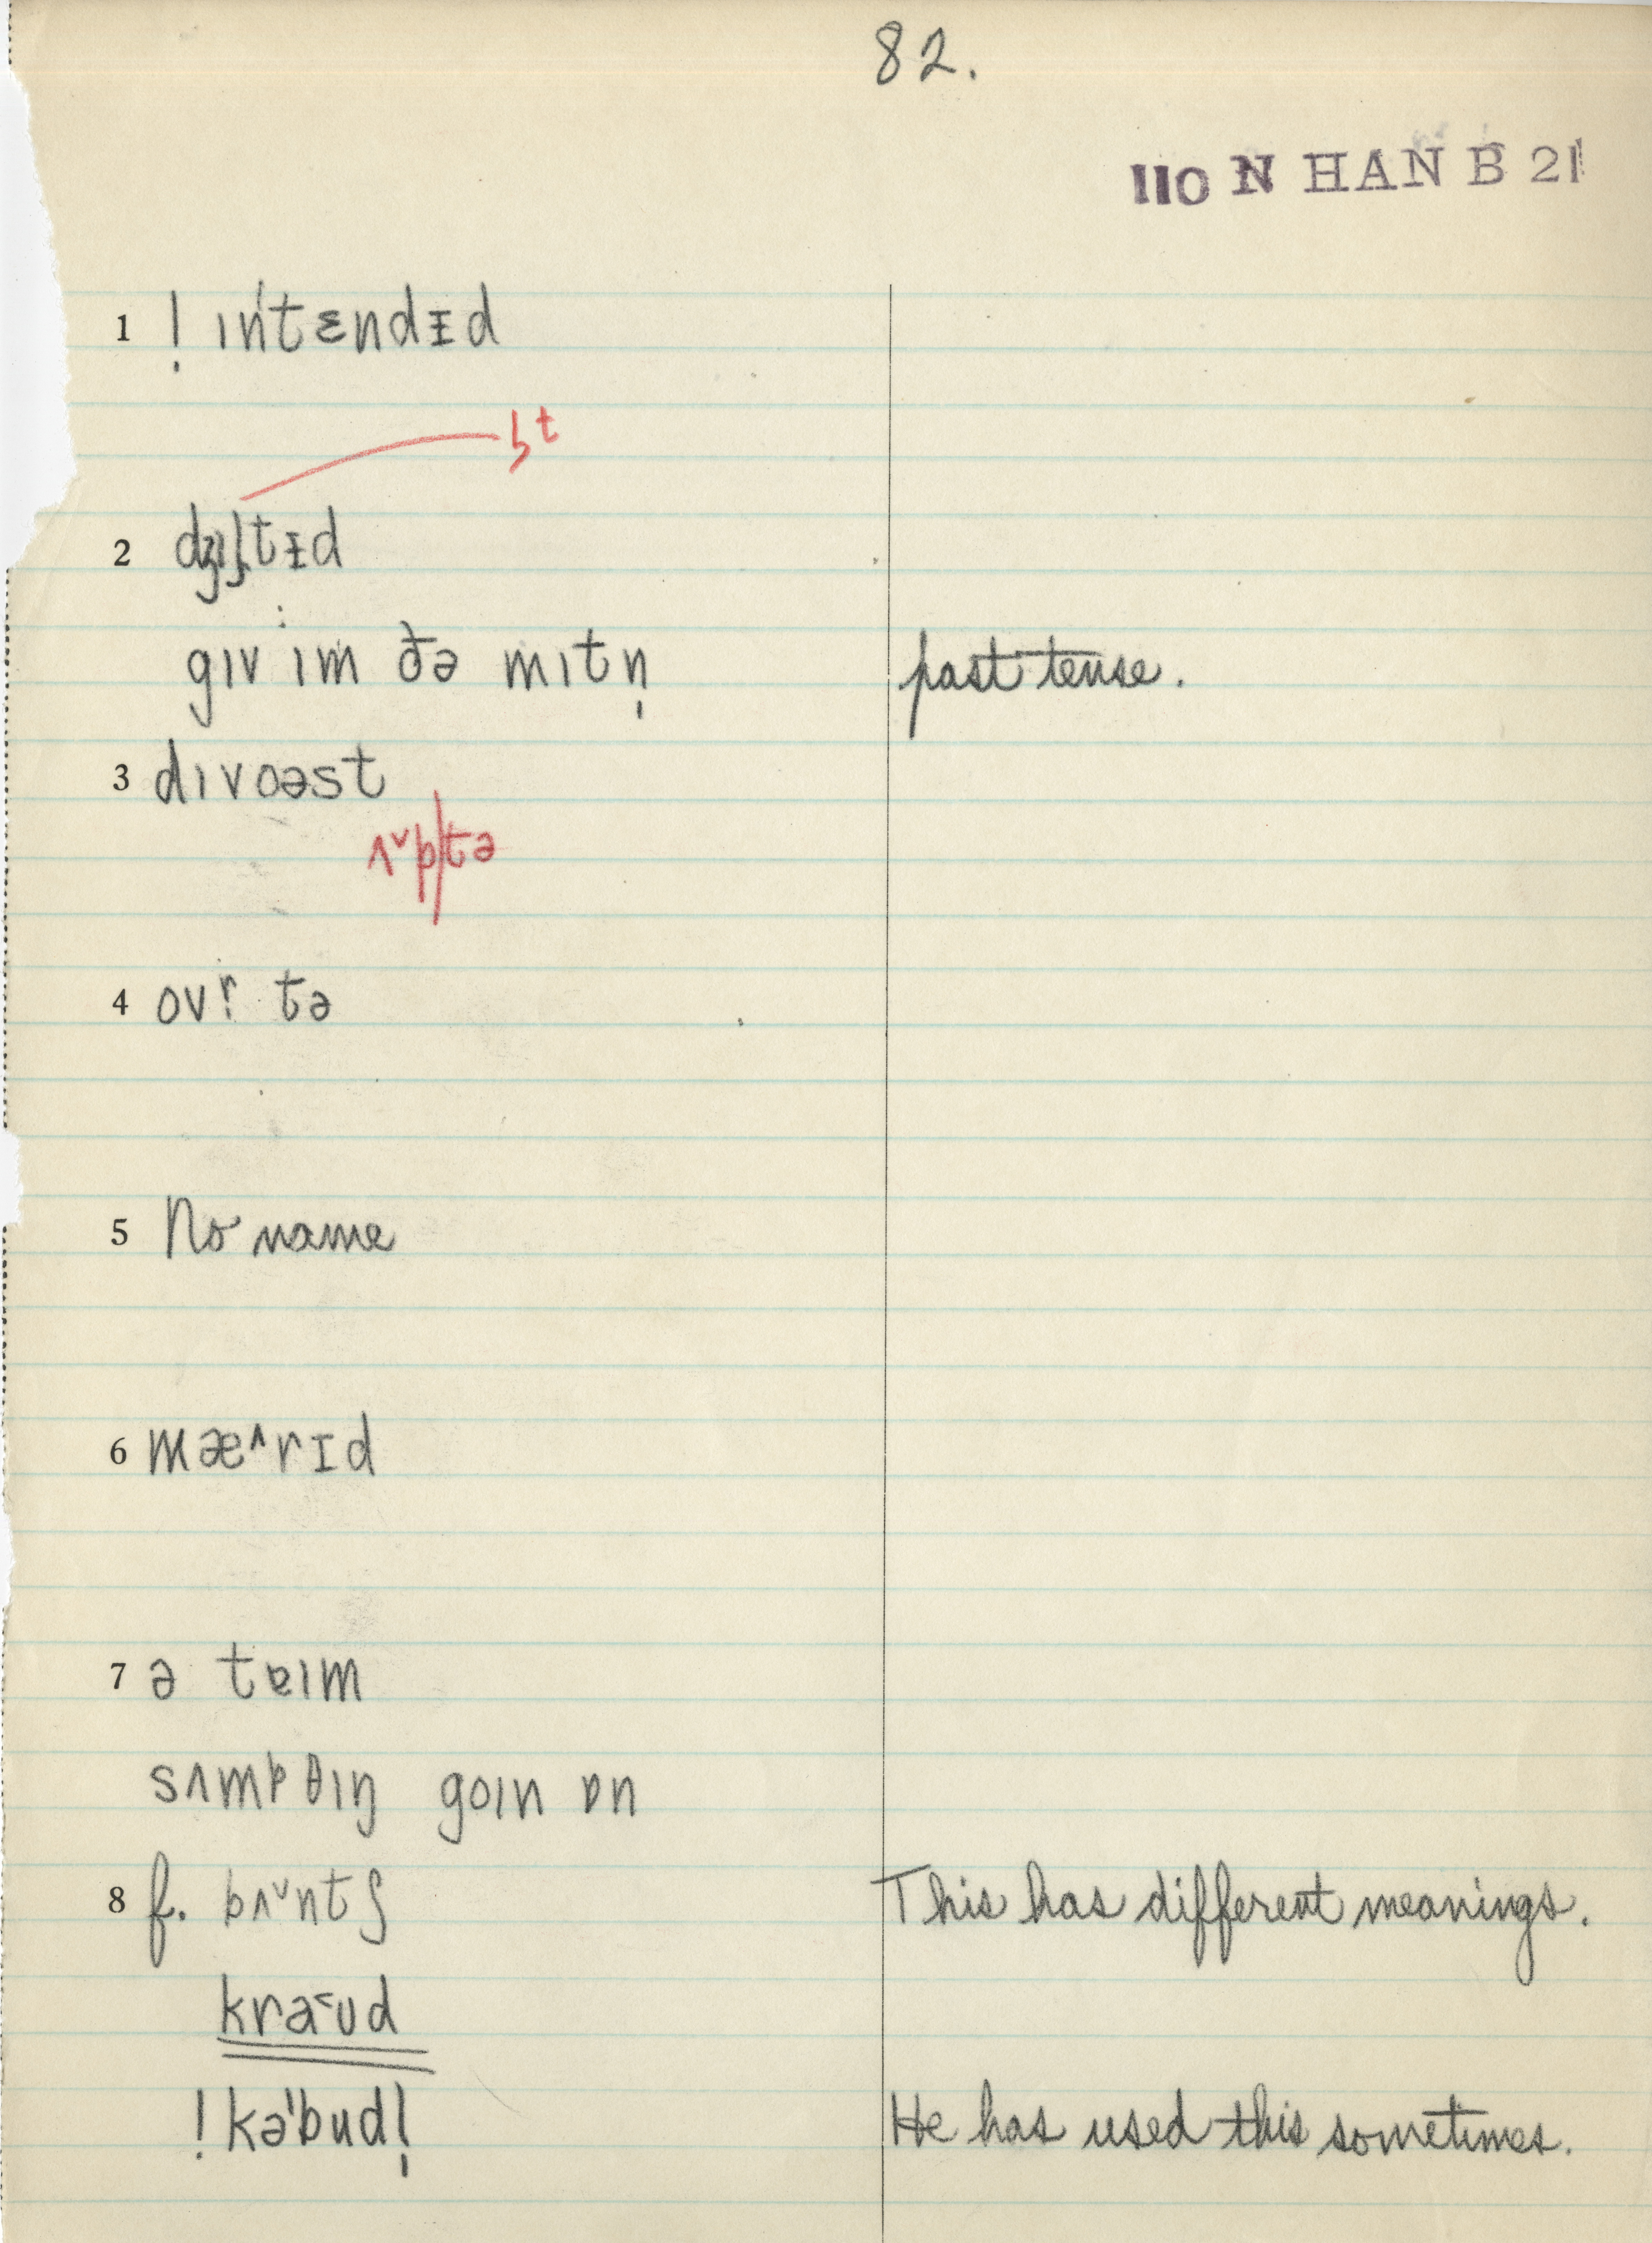 82.
110 N HAN B 21
1 ! ɪn'tɛndɪd
ʒt
2 dʒɪʃtɪd
gɪv ɪm ðə mɪtn̩ past tense.
3 dɪvoəst
ʌ˅p/tə
4 ovr̩ tə
5 No name
6 mæ^rɪd
7 ə tɐɪm
sʌmpθɪŋ goɪn ɒn
8 f. bʌ˅ntʃ This has different meanings.
kra˂ʊd
! kə'budl̩ He has used this sometimes.